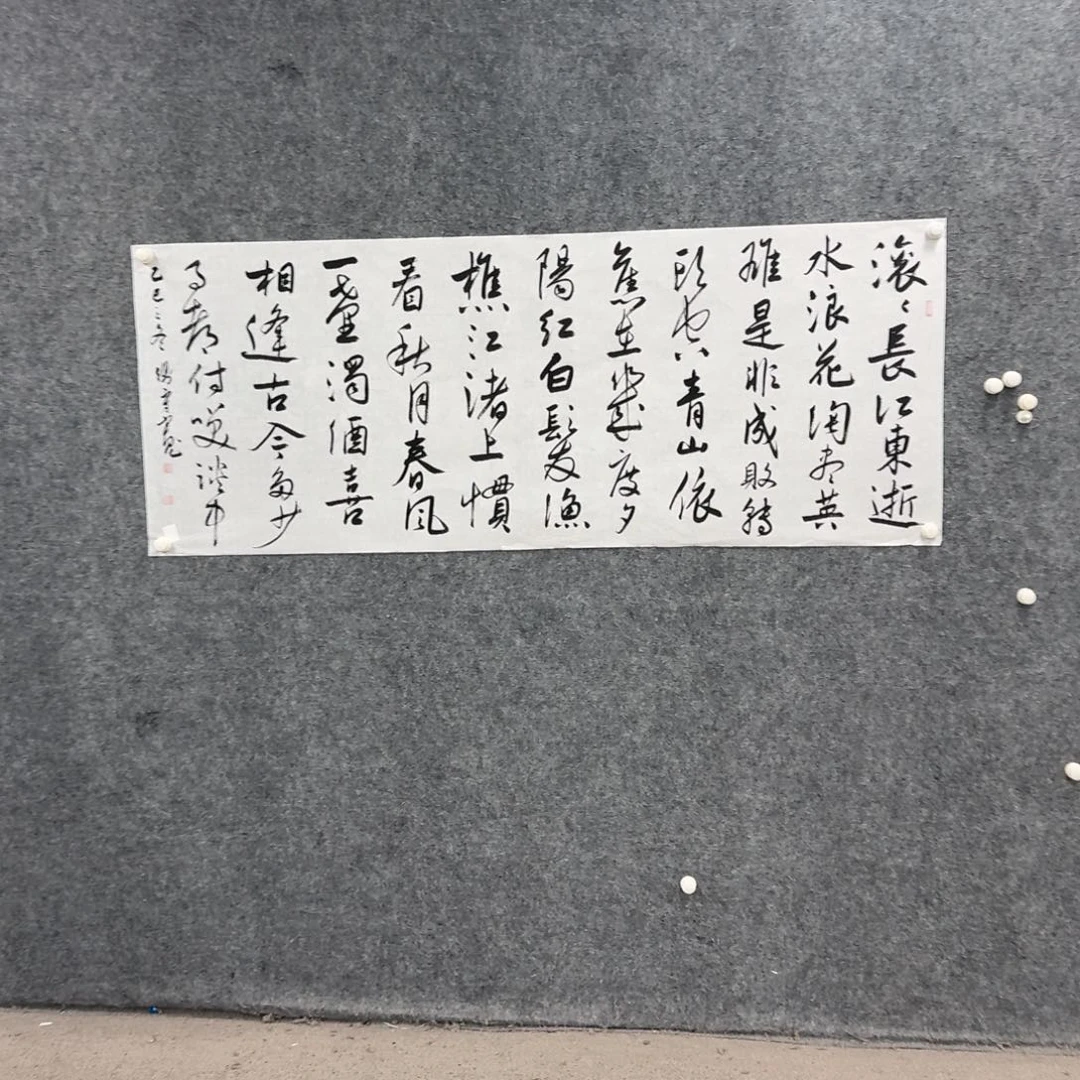 滚〻長江東逝
水浪花淘尽英
雄是非成敗转
头空青山依
舊在幾度夕
陽红白髮渔
樵江渚上慣
看秋月春风
一壺濁酒喜
相逢古今多少
事都付笑谈中
乙巳之冬